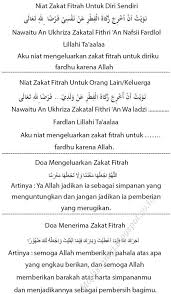 Niat Zakat Fitrah Untuk Diri Sendiri
نَوَيْتُ أَنْ أُخْرِجَ زَكَاةَ الْفِطْرِ عَنْ نَفْسِيْ فَرْضًا لِلّٰهِ تَعَالَى
Nawaitu An Ukhriza Zakatal Fithri 'An Nafsii Fardlol
Lillahi Ta'aalaa
Aku niat mengeluarkan zakat fitrah untuk diriku
fardhu karena Allah
Niat Zakat Fitrah Untuk Orang Lain/Keluarga
نَوَيْتُ أَنْ أُخْرِجَ زَكَاةَ الْفِطْرِ عَنْ وَلَدِيْ ... فَرْضًا لِلّٰهِ تَعَالَى
Nawaitu An Ukhriza Zakatal Fithri 'An Wa ladzi ............
Fardlan Lillahi Ta'aalaa
Aku niat mengeluarkan zakat fithri untuk ........
fardhu karena Allah.
Doa Mengeluarkan Zakat Fitrah
اللّٰهُمَّ اجْعَلْهَا مَغْنَمًا وَلَا تَجْعَلْهَا مَغْرَمًا
Artinya : Ya Allah jadikan ia sebagai simpanan yang
menguntungkan dan jangan jadikan ia pemberian
yang merugikan.
Doa Menerima Zakat Fitrah
Artinya : semoga Allah memberikan pahala atas apa
yang engkau berikan, dan semoga Allah
memberikan barakah atas harta simpananmu
dan menjadikannya sebagai pembersih bagimu.